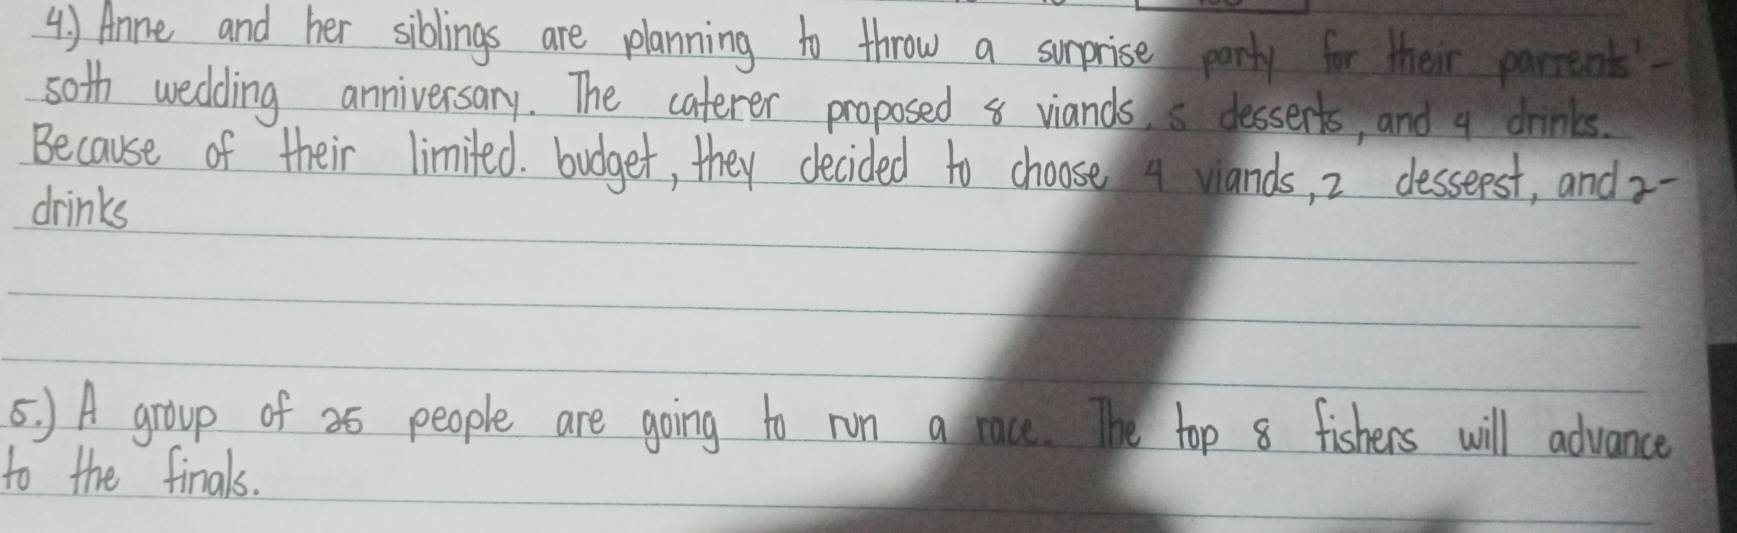 4.) Anne and her siblings are planning to throw a surprise party for their parrents'-
50th wedding anniversary. The caterer proposed 8 viands, 5 desserts, and 4 drinks.
Because of their limited. budget, they decided to choose 4 viands, 2 dessepst, and 2-
drinks
5.) A group of 25 people are going to run a race. The top 8 fishers will advance
to the finals.